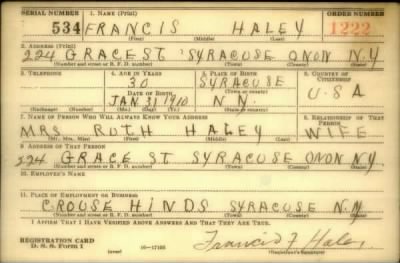 SERIAL NUMBER 1. NAME (Print) ORDER NUMBER
534 FRANCIS HALEY 1222
(First) (Middle) (Last)
2. ADDRESS (Print)
224 GRACE ST SYRACUSE ONON N.Y
(Number and street or R. F. D. number) (Town) (County) (State)
3. TELEPHONE 4. AGE IN YEARS 5. PLACE OF BIRTH 6. COUNTRY OF CITIZENSHIP
30 SYRACUSE
DATE OF BIRTH (Town or county) U S A
JAN. 31 1910 N.N.
(Exchange) (Number) (Mo.) (Day) (Yr.) (State or country)
7. NAME OF PERSON WHO WILL ALWAYS KNOW YOUR ADDRESS 8. RELATIONSHIP OF THAT PERSON
MRS RUTH HALEY WIFE
(Mr., Mrs., Miss) (First) (Middle) (Last)
9. ADDRESS OF THAT PERSON
224 GRACE ST SYRACUSE ONON NY
(Number and street or R. F. D. number) (Town) (County) (State)
10. EMPLOYER'S NAME
11. PLACE OF EMPLOYMENT OR BUSINESS
CROUSE HINDS SYRACUSE N.Y.
(Number and street or R. F. D. number) (Town) (County) (State)
I AFFIRM THAT I HAVE VERIFIED ABOVE ANSWERS AND THAT THEY ARE TRUE.
REGISTRATION CARD
D. S. S. FORM 1 (over) 16-17105 Francis J Haley
(Registrant's signature)